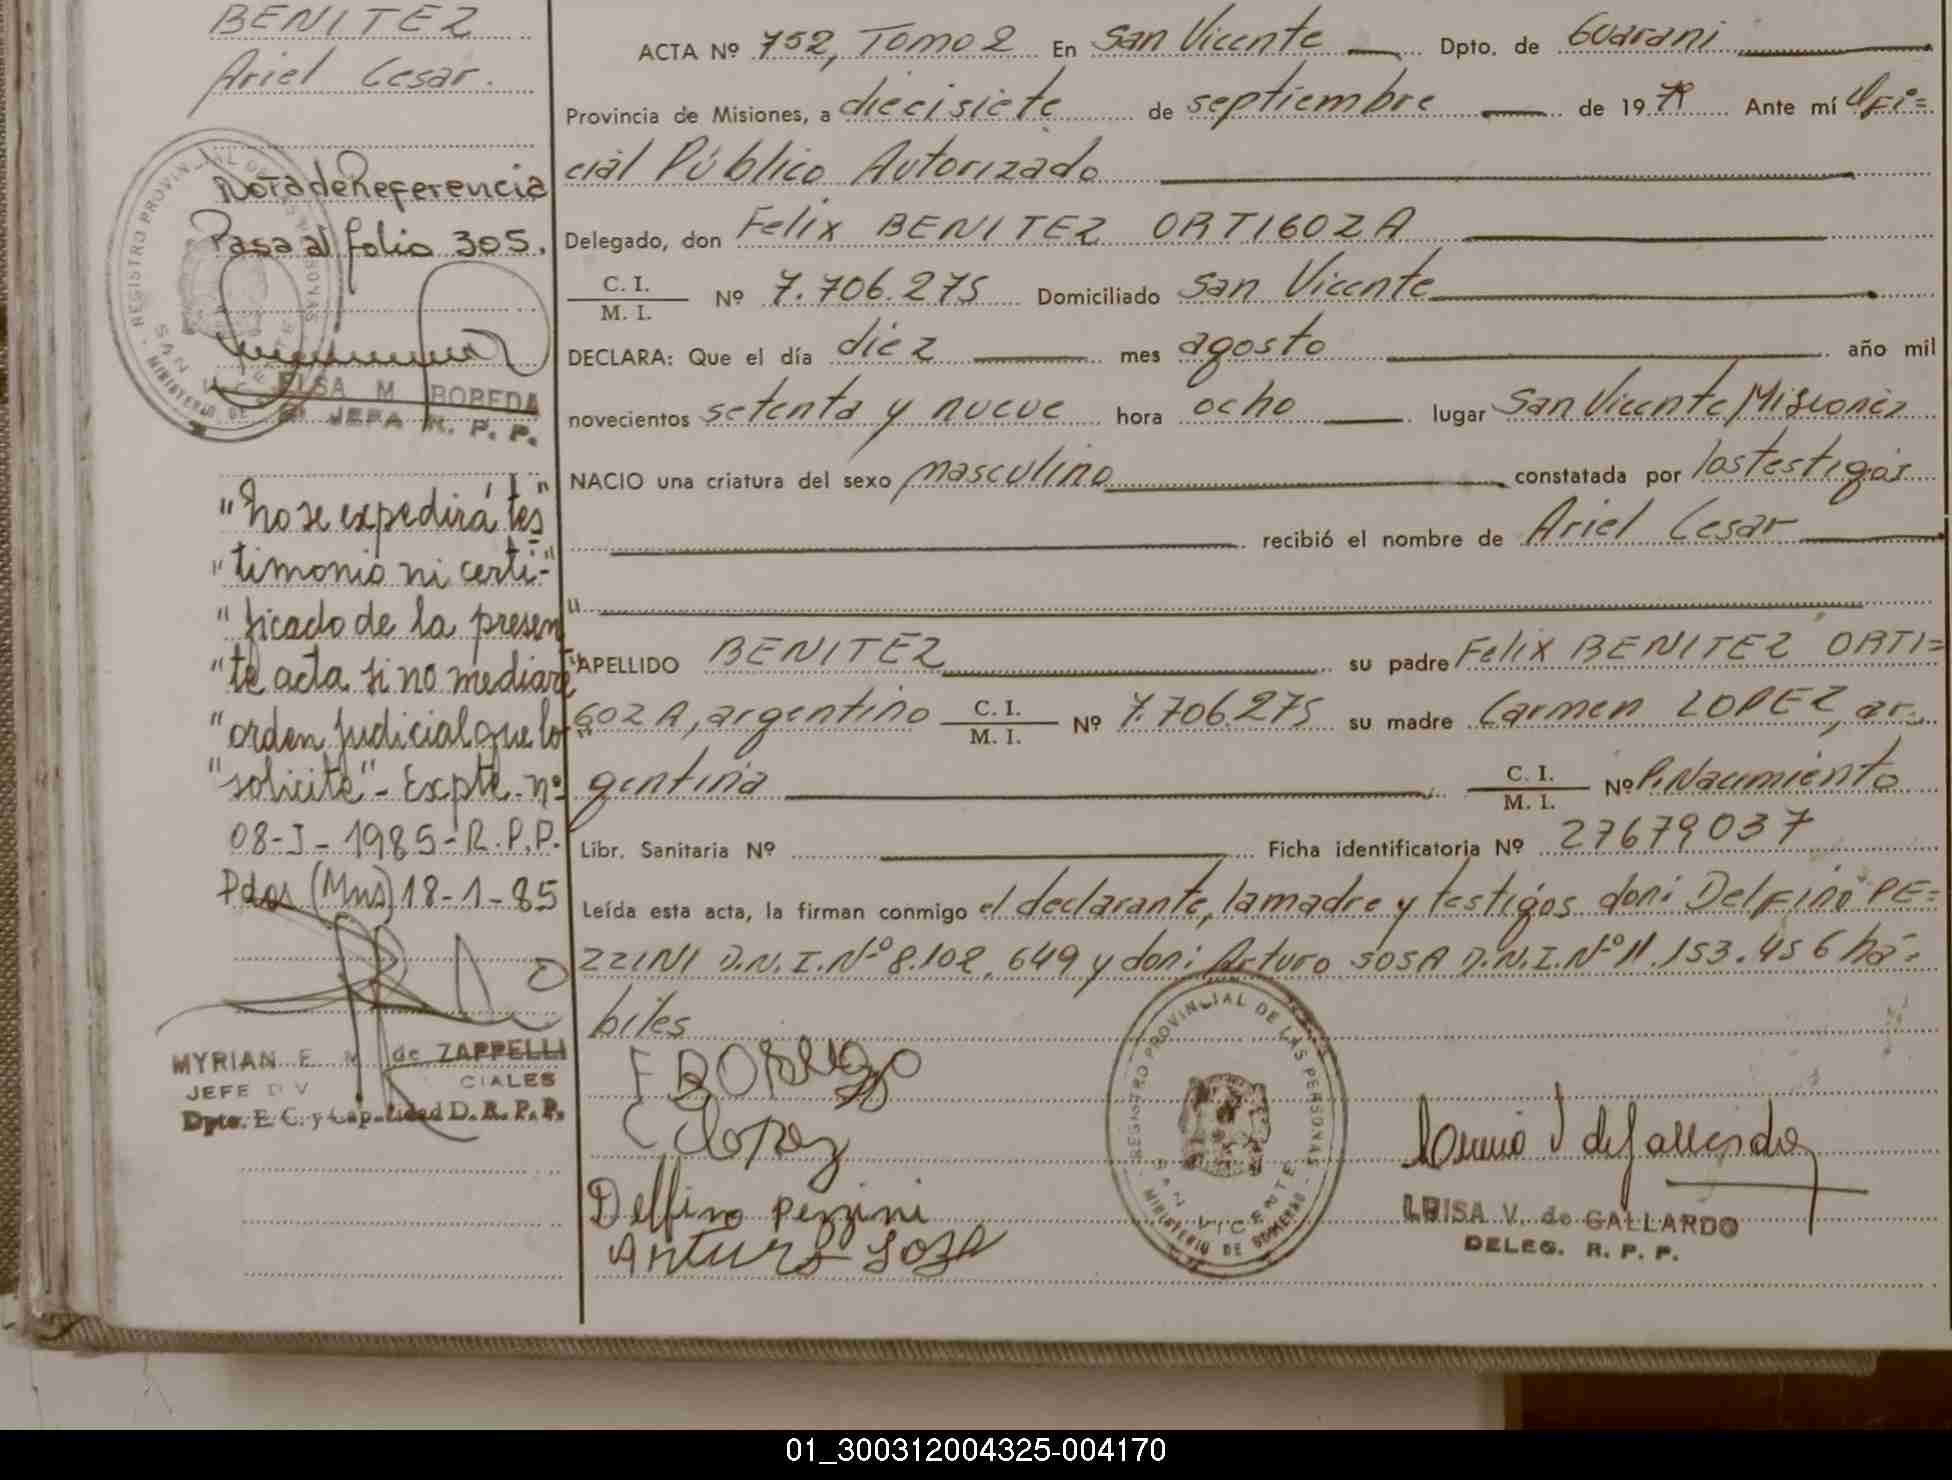 BENITEZ
Ariel Cesar.
Nota de Referencia
Pasa al folio 305.
REGISTRO PROVINCIAL DE LAS PERSONAS
SAN VICENTE
MINISTERIO DE
ELSA M BOREDA
JEFA R. P. P.
"No se expedirá tes"
"timonio ni certi-"
"ficado de la presen"
"te acta si no mediare"
"orden judicial que lo"
"solicite" - Expte. nº
08-I-1985-R.P.P.
Pdas (Mns) 18-1-85
MYRIAN E. M. de ZAPPELLI
JEFE DIV CIALES
Dpto. E. C. y Cap. D. R. P. P.
ACTA Nº 752, Tomo 2 En San Vicente Dpto. de Guarani
Provincia de Misiones, a diecisiete de septiembre de 1979 Ante mí Ofi=
cial Público Autorizado
Delegado, don Felix BENITEZ ORTIGOZA
C. I. / M. I. Nº 7.706.275 Domiciliado San Vicente
DECLARA: Que el día diez mes agosto año mil
novecientos setenta y nueve hora ocho lugar San Vicente Misiones
NACIO una criatura del sexo masculino constatada por los testigos
recibió el nombre de Ariel Cesar
APELLIDO BENITEZ su padre Felix BENITEZ ORTI=
GOZA, argentino C. I. / M. I. Nº 7.706.275 su madre Carmen LOPEZ, ar-
gentina C. I. / M. I. Nº P. Nacimiento
Libr. Sanitaria Nº Ficha identificatoria Nº 27679037
Leída esta acta, la firman conmigo el declarante, la madre y testigos don: Delfino PE=
ZZINI D.N.I. Nº 8.102.649 y don: Arturo SOSA D.N.I. Nº 11.153.456 há-
biles
C Lopez
Delfino Pezzini
Arturo Sosa
REGISTRO PROVINCIAL DE LAS PERSONAS
SAN VICENTE
MINISTERIO DE GOBIERNO
LUISA V. de GALLARDO
DELEG. R. P. P.
01_300312004325-004170